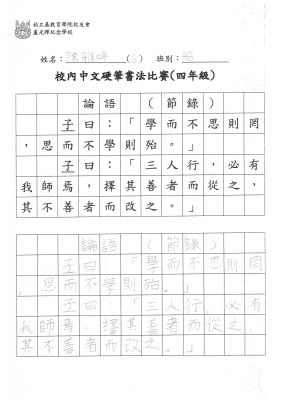 柏立基教育學院校友會
盧光輝紀念學校
姓名： 陳 ( ) 班別： 4B
校內中文硬筆書法比賽(四年級)
論語（節錄）
子曰：「學而不思則罔
，思而不學則殆。」
子曰：「三人行，必有
我師焉，擇其善者而從之，
其不善者而改之。」
論語（節錄）
子曰：「學而不思則罔
，思而不學則殆。」
子曰：「三人行，必有
我師焉，擇其善者而從之，
其不善者而改之。」